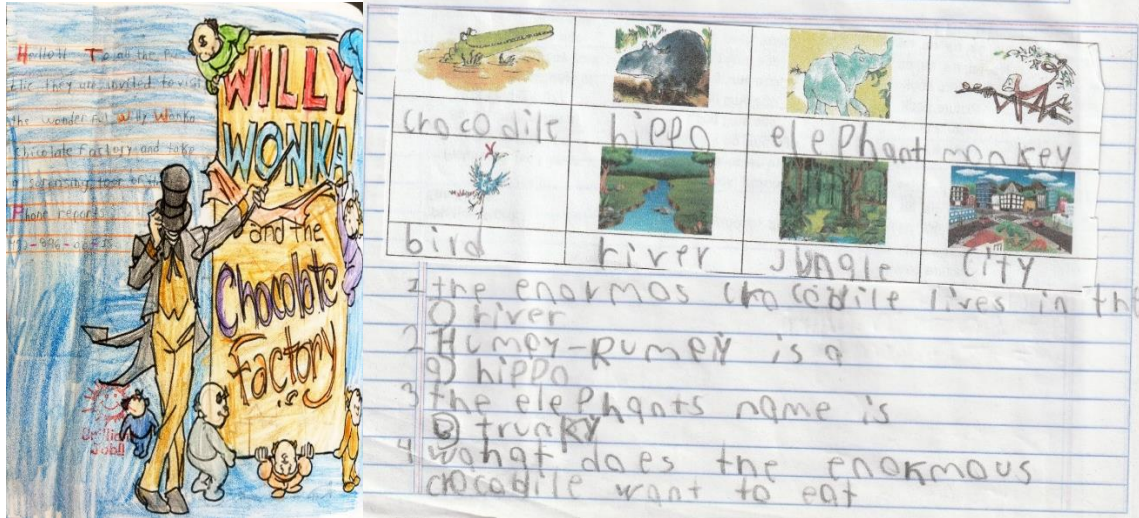 Hello!! To all the
they are invited to visit
the wonderful Willy Wonka
chocolate factory and take
a surprising tour
Phone
WILLY
WONKA
and the
Chocolate
Factory
Job!!
crocodile hippo elephant monkey
bird river jungle city
1 the enormos crocodile lives in th
river
2 Humpy-Rumpy is a
a) hippo
3 the elephants name is
b) trunky
4 wohat does the enormous
crocodile want to eat